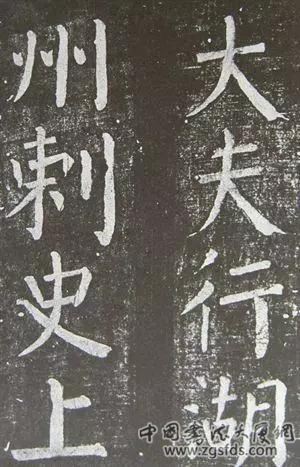 大夫行湖
州刺史上
中国书法展网
www.zgsfds.com